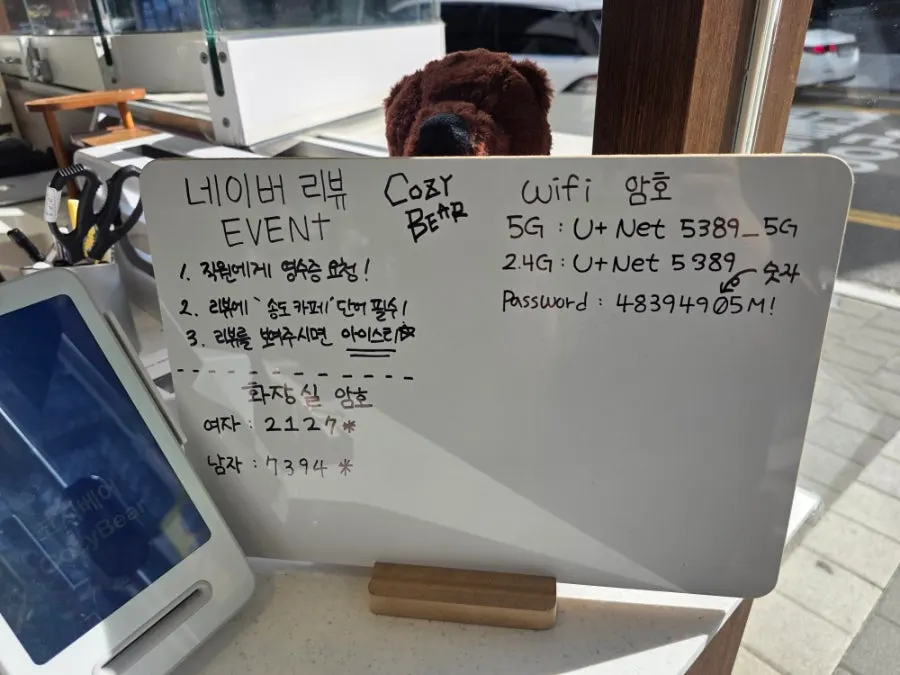 네이버 리뷰
EVENT
1. 직원에게 영수증 요청!
2. 리뷰에 '송도 카페' 단어 필수!
3. 리뷰를 보여주시면 아이스티
화장실 암호
여자 : 2127*
남자 : 7394*
COZY
BEAR
Wifi 암호
5G : U+Net 5389_5G
2.4G : U+Net 5389
숫자
Password : 48394905M!
코지베어
CozyBear